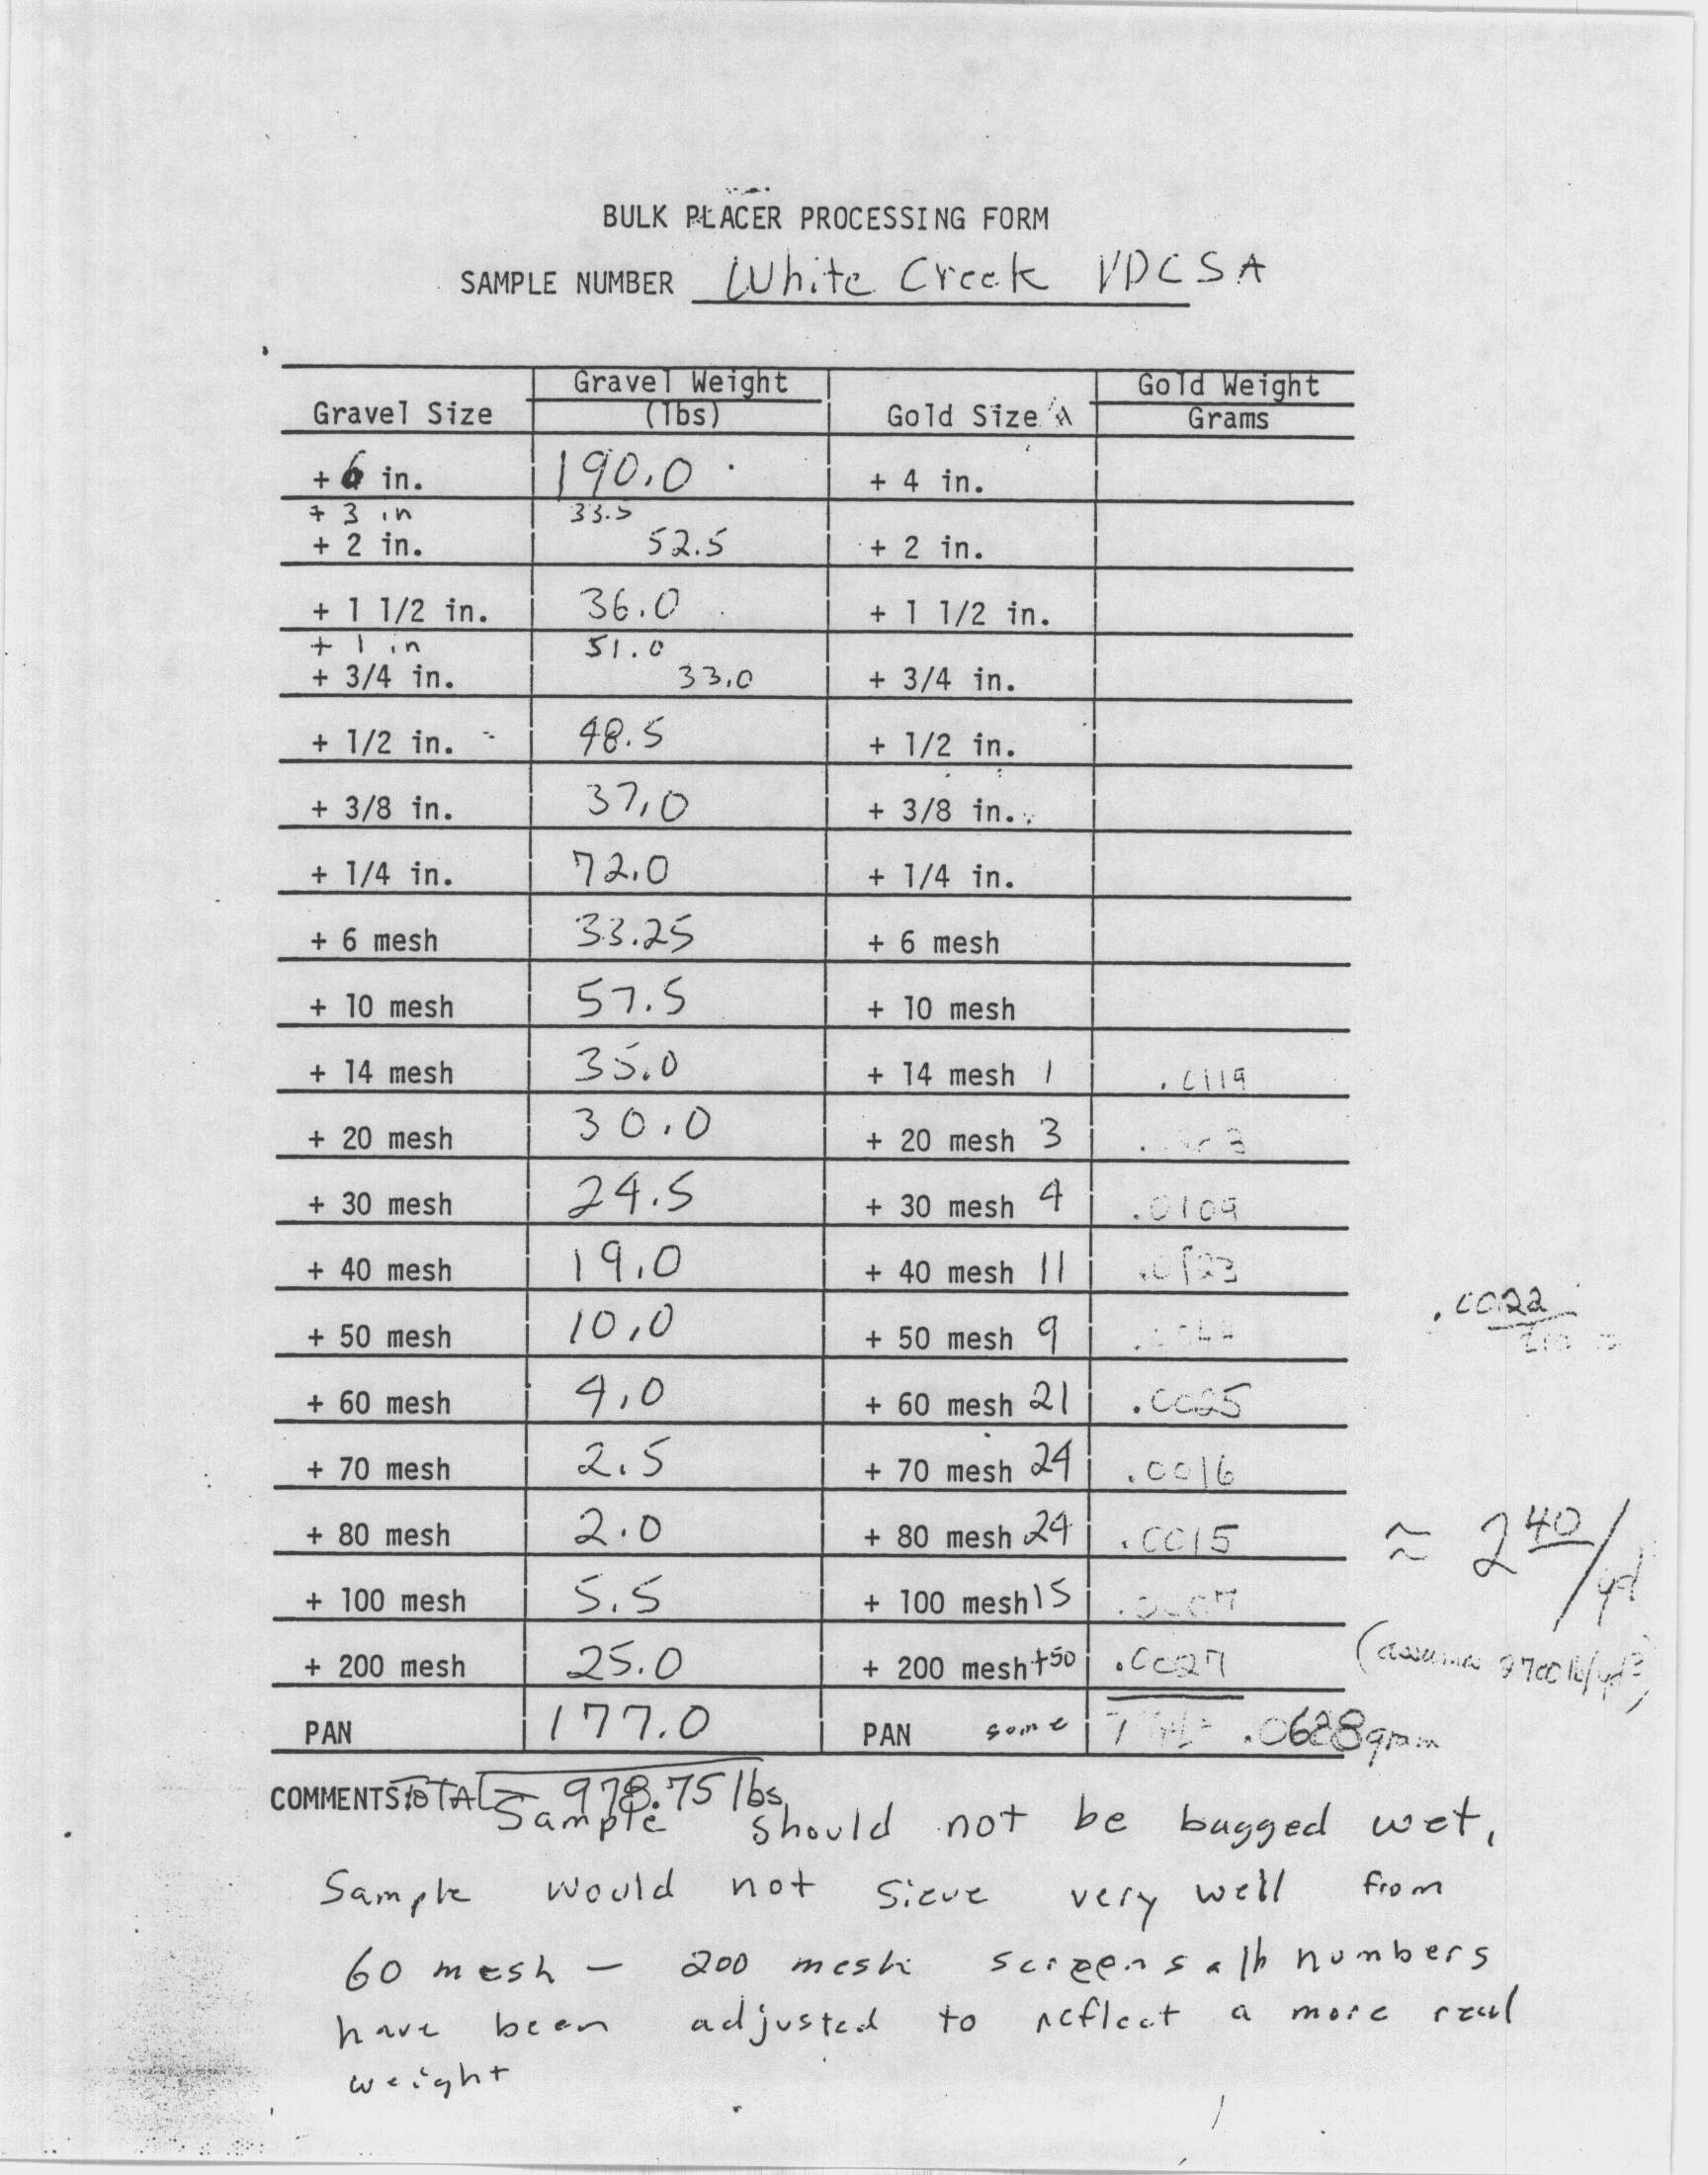 BULK PLACER PROCESSING FORM
SAMPLE NUMBER White Creek VDCSA
Gravel Size Gravel Weight (lbs) Gold Size Gold Weight Grams
+ 6 in. 190.0 + 4 in.
+ 3 in 33.5
+ 2 in. 52.5 + 2 in.
+ 1 1/2 in. 36.0 + 1 1/2 in.
+ 1 in 51.0
+ 3/4 in. 33.0 + 3/4 in.
+ 1/2 in. 48.5 + 1/2 in.
+ 3/8 in. 37.0 + 3/8 in.
+ 1/4 in. 72.0 + 1/4 in.
+ 6 mesh 33.25 + 6 mesh
+ 10 mesh 57.5 + 10 mesh
+ 14 mesh 35.0 + 14 mesh 1 .0119
+ 20 mesh 30.0 + 20 mesh 3
+ 30 mesh 24.5 + 30 mesh 4 .0109
+ 40 mesh 19.0 + 40 mesh 11 .0123
.0022
+ 50 mesh 10.0 + 50 mesh 9
+ 60 mesh 4.0 + 60 mesh 21 .0025
+ 70 mesh 2.5 + 70 mesh 24 .0016
+ 80 mesh 2.0 + 80 mesh 24 .0015
≈ 2 40/yd
+ 100 mesh 5.5 + 100 mesh 15
+ 200 mesh 25.0 + 200 mesh +50 .0027
(assumes 2700 lb/yd³)
PAN 177.0 PAN some .0628 gram
COMMENTS TOTAL = 978.75 lbs
Sample should not be bagged wet,
Sample would not sieve very well from
60 mesh – 200 mesh screens numbers
have been adjusted to reflect a more real
weight